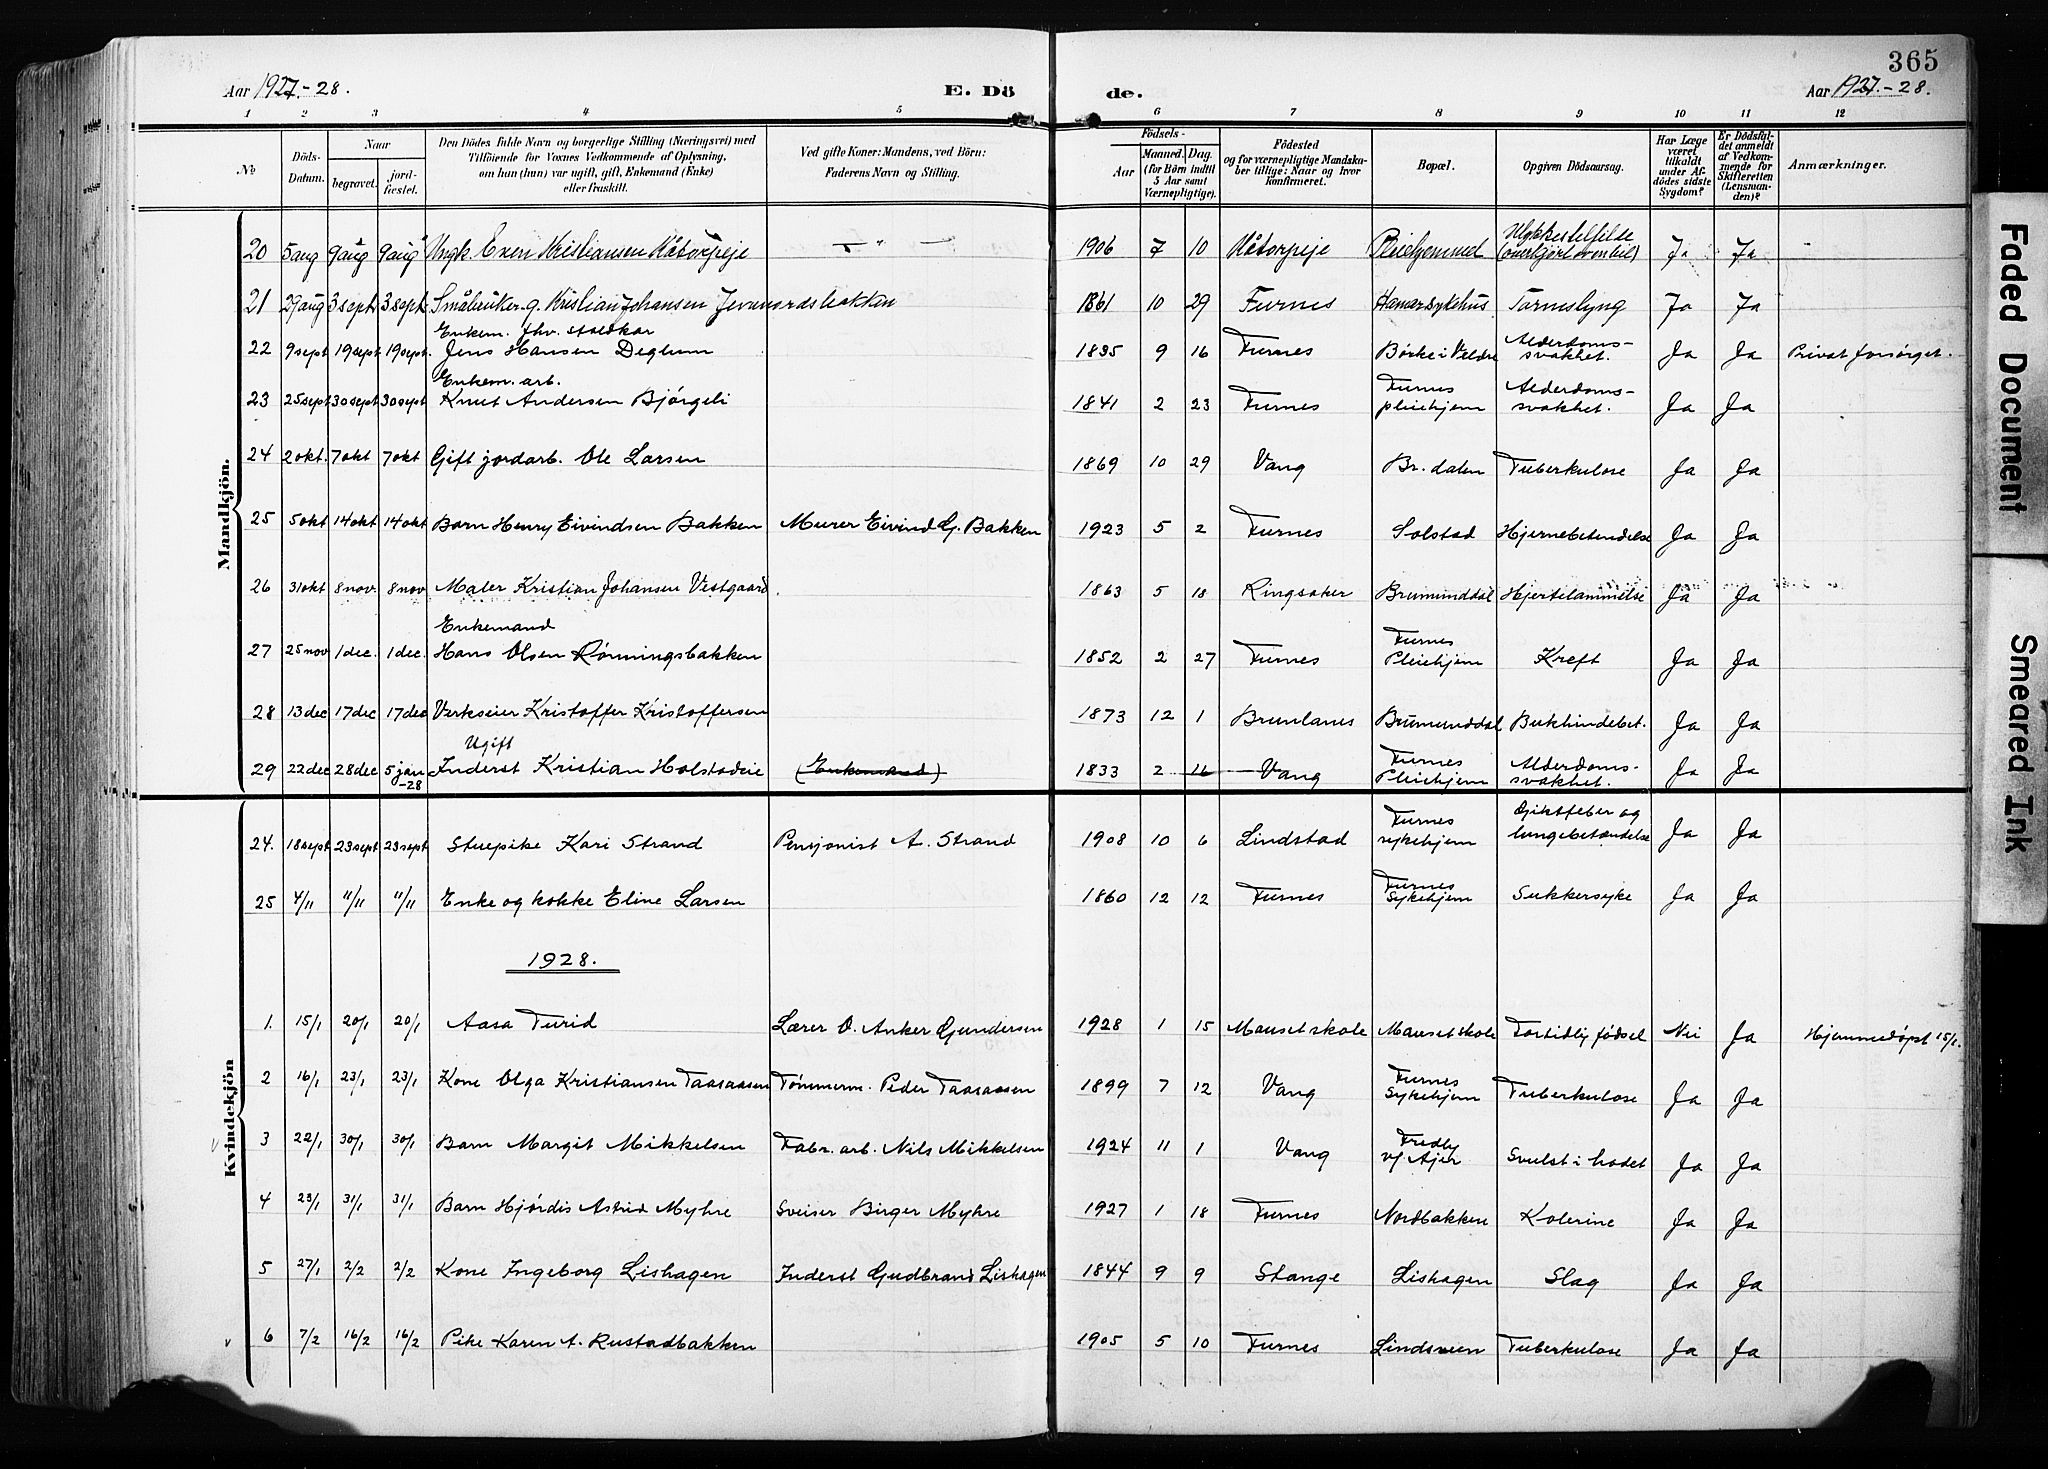 365
Aar 1927.-28. E. Dö de. Aar 1927.-28.
1 2 3 4 5 6 7 8 9 10 11 12
No Döds-Datum. Naar begravet. jord-fæstet. Den Dödes fulde Navn og borgerlige Stilling (Næringsvei) med Tilföiende for Voxnes Vedkommende af Oplysning, om hun (hun) var ugift, gift, Enkemand (Enke) eller fraskilt. Ved gifte Koner: Mandens, ved Börn: Faderens Navn og Stilling. Födsels- Aar Maaned. Dag. (for Börn indtil 5 Aar samt Værnepligtige). Födested og for værnepligtige Mandska-ber tillige: Naar og hvor konfirmeret. Bopæl. Opgiven Dödsaarsag. Har Læge været tilkaldt under Af-dödes sidste Sygdom? Er Dödsfal-det anmeldt af Vedkom-mende for Skifteretten (Lensman-den)? Anmærkninger.
Mandkjön.
20 5 aug 9 aug 9 aug Ungk. Kristiansen Kåtorpeje 1906 7 10 Kåtorpeje Pleiehjemmet Ulykkestilfelde (overkjört av bil) Ja Ja
21 29 aug 3 sept 3 sept. Småbruker g. Kristian Johansen 1861 10 29 Furnes Hamar sykehus Tarmslyng Ja Ja
22 9 sept 19 sept 19 sept. Enkem. fhv. staldkar Jens Hansen Deglum 1835 9 16 Furnes Börke i Veldre Alderdoms-svakhet. Ja Ja Privat forsørget.
23 25 sept 30 sept 30 sept Enkem. arb. Knut Andersen Bjørgeli 1841 2 23 Furnes Furnes pleiehjem Alderdoms-svakhet. Ja Ja
24 2 okt. 7 okt 7 okt Gift jordarb. Ole Larsen 1869 10 29 Vang Br. dalen Tuberkulose Ja Ja
25 5 okt 14 okt 14 okt Barn Henry Eivindsen Bakken Murer Eivind G. Bakken 1923 5 2 Furnes Solstad Hjernebetendelse Ja Ja
26 31 okt 8 nov. 8 nov Maler Kristian Johansen Vestgaard. 1863 5 18 Ringsaker Brumunddal Hjertelammelse Ja Ja
27 25 nov 1 dec. 1 dec. Enkemand Hans Olsen Rønningsbakken 1852 2 27 Furnes Furnes Pleiehjem Kreft Ja Ja
28 13 dec 17 dec 17 dec Verkseier Kristoffer Kristoffersen 1873 12 1 Brunlanes Brumunddal Bukhindebet. Ja Ja
29 22 dec 28 dec 5 jan -28 Ugift Inderst Kristian Holstadeie (Enkemand) 1833 2 16 Vang Furnes Pleiehjem Alderdoms-svakhet. Ja Ja
Kvindekjön
24. 18 sept 23 sept 23 sept Stuepike Kari Strand Pensjonist A. Strand 1908 10 6 Lindstad Furnes sykehjem Giktfeber og lungebetændelse Ja Ja
25 4/11 11/11 11/11 Enke og kokke Eline Larsen 1860 12 12 Furnes Furnes Sykehjem Sukkersyke Ja Ja
1928.
1. 15/1 20/1 20/1 Aasa Turid Lærer O. Anker Gundersen 1928 1 15 Mauset skole Mauset skole Fortidlig fødsel Nei Ja Hjemmedøpt 15/1.
2 16/1 23/1 23/1 Kone Olga Kristiansen Taasaasen Tømmerm. Peder Taasaasen 1899 7 12 Vang Furnes Sykehjem Tuberkulose Ja Ja
v 3 22/1 30/1 30/1 Barn Margit Mikkelsen Fabr. arb. Nils Mikkelsen 1924 11 1 Vang Fredly v/ Ajer Svulst i hodet Ja Ja
4 23/1 31/1 31/1 Barn Hjørdis Astrid Myhre Sveiser Birger Myhre 1927 1 18 Furnes Nordbakken Kolerine Ja Ja
5 27/1 2/2 2/2 Kone Ingeborg Lishagen Inderst Gudbrand Lishagen 1844 9 9 Stange Lishagen Slag Ja Ja
v 6 7/2 16/2 16/2 Pike Karen A. Rustadbakken 1905 5 10 Furnes Lindsveen Tuberkulose Ja Ja
Faded Document
Smeared Ink